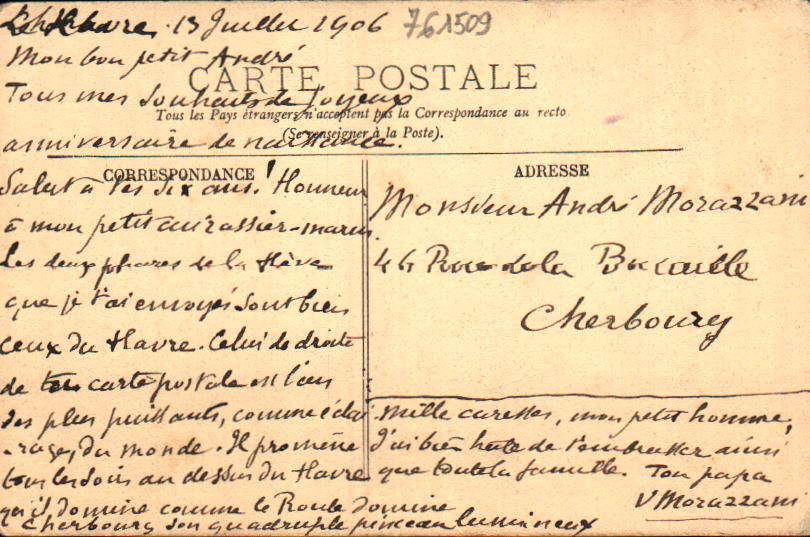 Le Havre. 13 Juillet 1906 761509
Mon bon petit André
CARTE POSTALE
Tous mes souhaits de joyeux
Tous les Pays étrangers n'acceptent pas la Correspondance au recto
(Se renseigner à la Poste).
anniversaire de naissance.
CORRESPONDANCE
Salut à tes six ans! Honneur
à mon petit cuirassier-marin.
Les deux phares de la Hève
que je t'ai envoyés sont bien
ceux du Havre. Celui de droite
de ta carte postale est l'un
des plus puissants, comme éclai
-rage, du monde. Il promène
tous les soirs au dessus du Havre
qu'il domine comme le Roule domine
Cherbourg son quadruple pinceau lumineux
ADRESSE
Monsieur André Morazzani
46 Rue de la Bucaille
Cherbourg
Mille caresses, mon petit homme,
J'ai bien hâte de t'embrasser ainsi
que toute la famille. Ton papa
V Morazzani